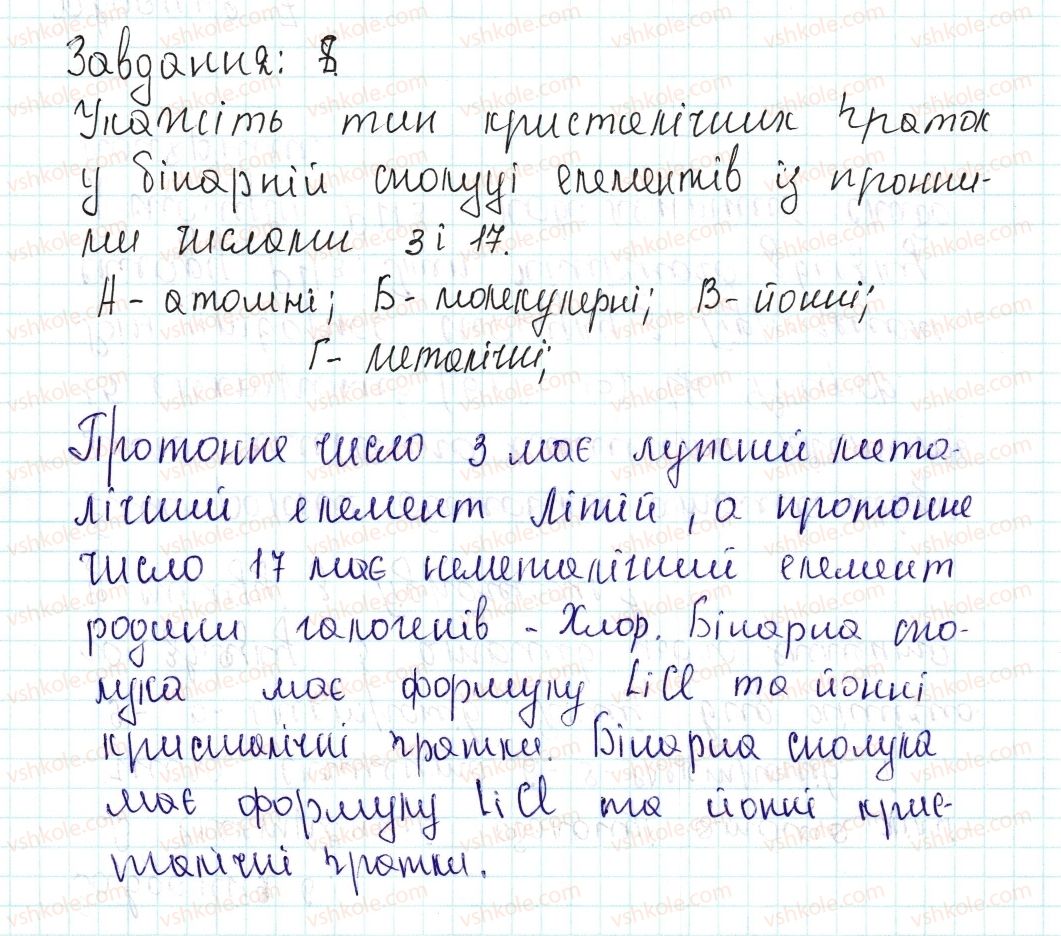 Завдання: 8.
Укажіть тип кристалічних ґраток
у бінарній сполуці елементів із протонни-
ми числами 3 і 17.
А - атомні; Б - молекулярні; В - йонні;
Г - металічні;
Протонне число 3 має лужний мета-
лічний елемент Літій, а протонне
число 17 має неметалічний елемент
родини галогенів - Хлор. Бінарна спо-
лука має формулу LiCl та йонні
кристалічні ґратки. Бінарна сполука
має формулу LiCl та йонні крис-
талічні ґратки.